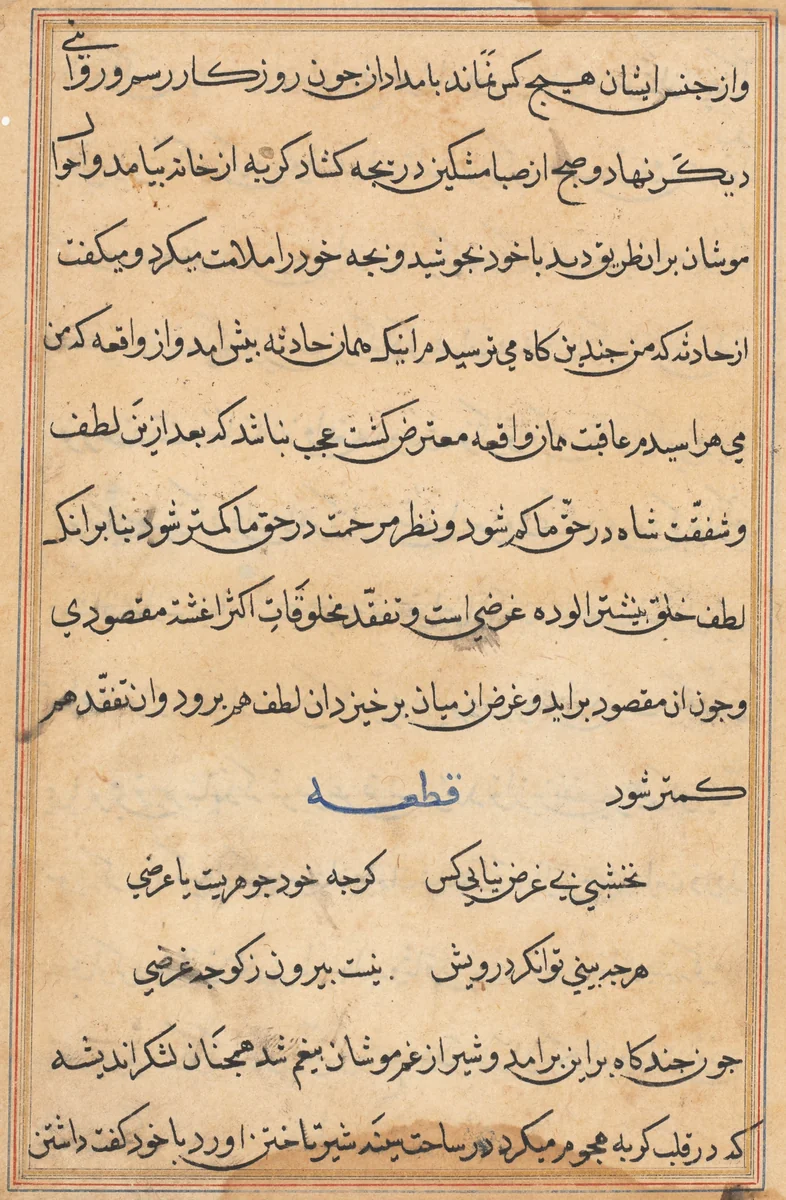 واز جنس ایشان هیچ کس نماند بامدادان جون روزکار رسم و روانی
دیکر نهاد و صبح از صبا مشکین دریجه کشاد کربه از خانه بیامد و احوال
موشان بران طریق دید باخود بجوشید و بجه خود را ملامت میکرد و میکفت
از حادثه که من جندین کاه می ترسیدم اینک همان حادثه بیش امد و از واقعه که من
می هراسیدم عاقبت همان واقعه معترض کشت عجب نباشد که بعد ازین لطف
و شفقّت شاه در حقّ ما کم شود و نظر مرحمت در حق ما کمتر شود بنا برانک
لطف خلق بیشتر الوده غرضی است و تفقّد مخلوقات اکثر اغشته مقصودی
و جون ان مقصود براید و غرض از میان برخیزد ان لطف هم برود و ان تفقّد هم
کمتر شود قطعه
نخشبی بی غرض نیابی کس کرجه خود جوهریت یا عرضی
هرجه بینی توانکر درویش نیست بیرون ز کوجه غرضی
جون جند کاه براین برامد و شیر از غم موشان بیغم شد همجنان لشکر اندیشه
که در قلب کربه هجوم میکرد در ساحت سینه شیر تاختن اورد باخود کفت داشتن